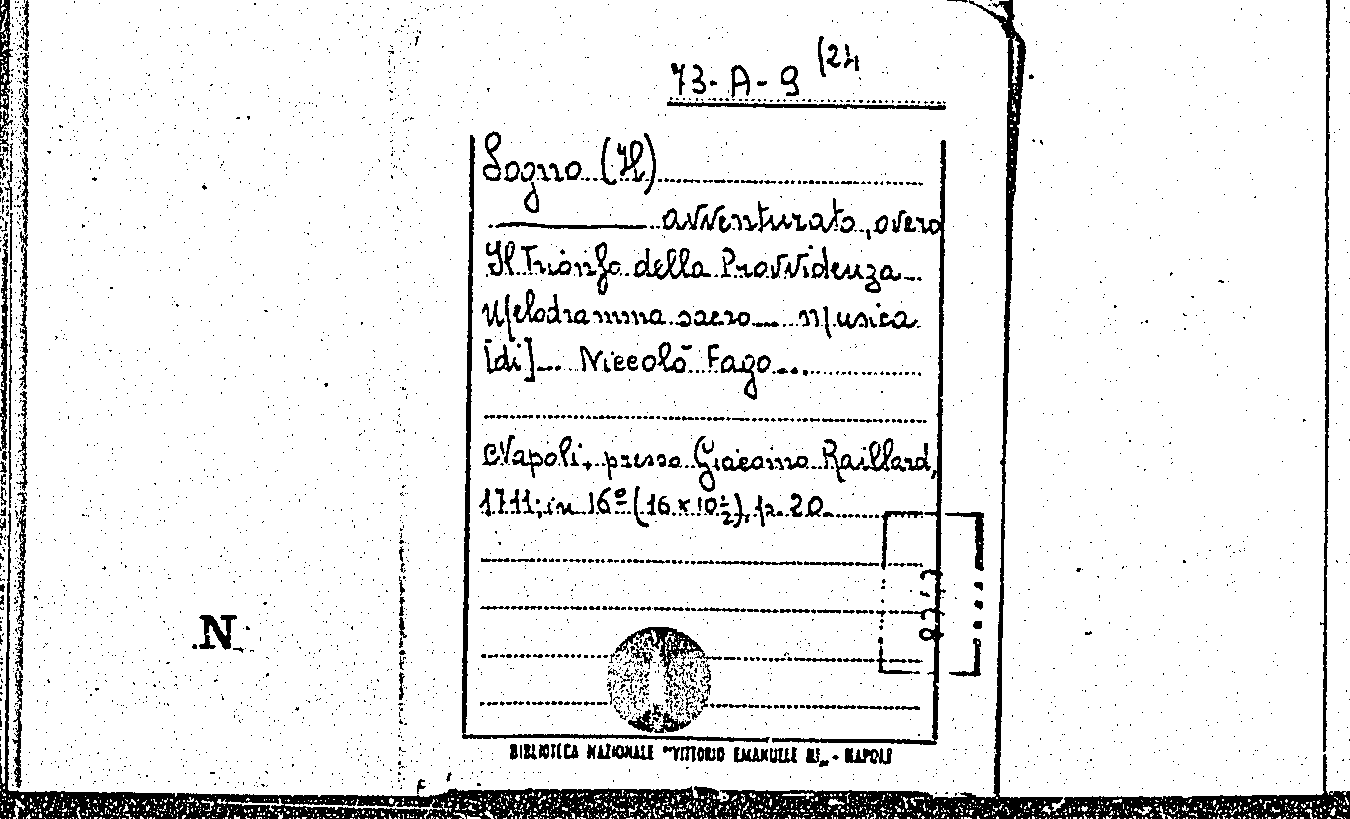 73-A-9 (24
Sogno (Il)
avventurato, overo
Il Trionfo della Provvidenza...
Melodramma sacro... Musica
[di]... Niccolò Fago...
Napoli, presso Giacomo Raillard,
1711; in 16º (16 x 10½), p. 20.
N
BIBLIOTECA NAZIONALE "VITTORIO EMANUELE III" - NAPOLI